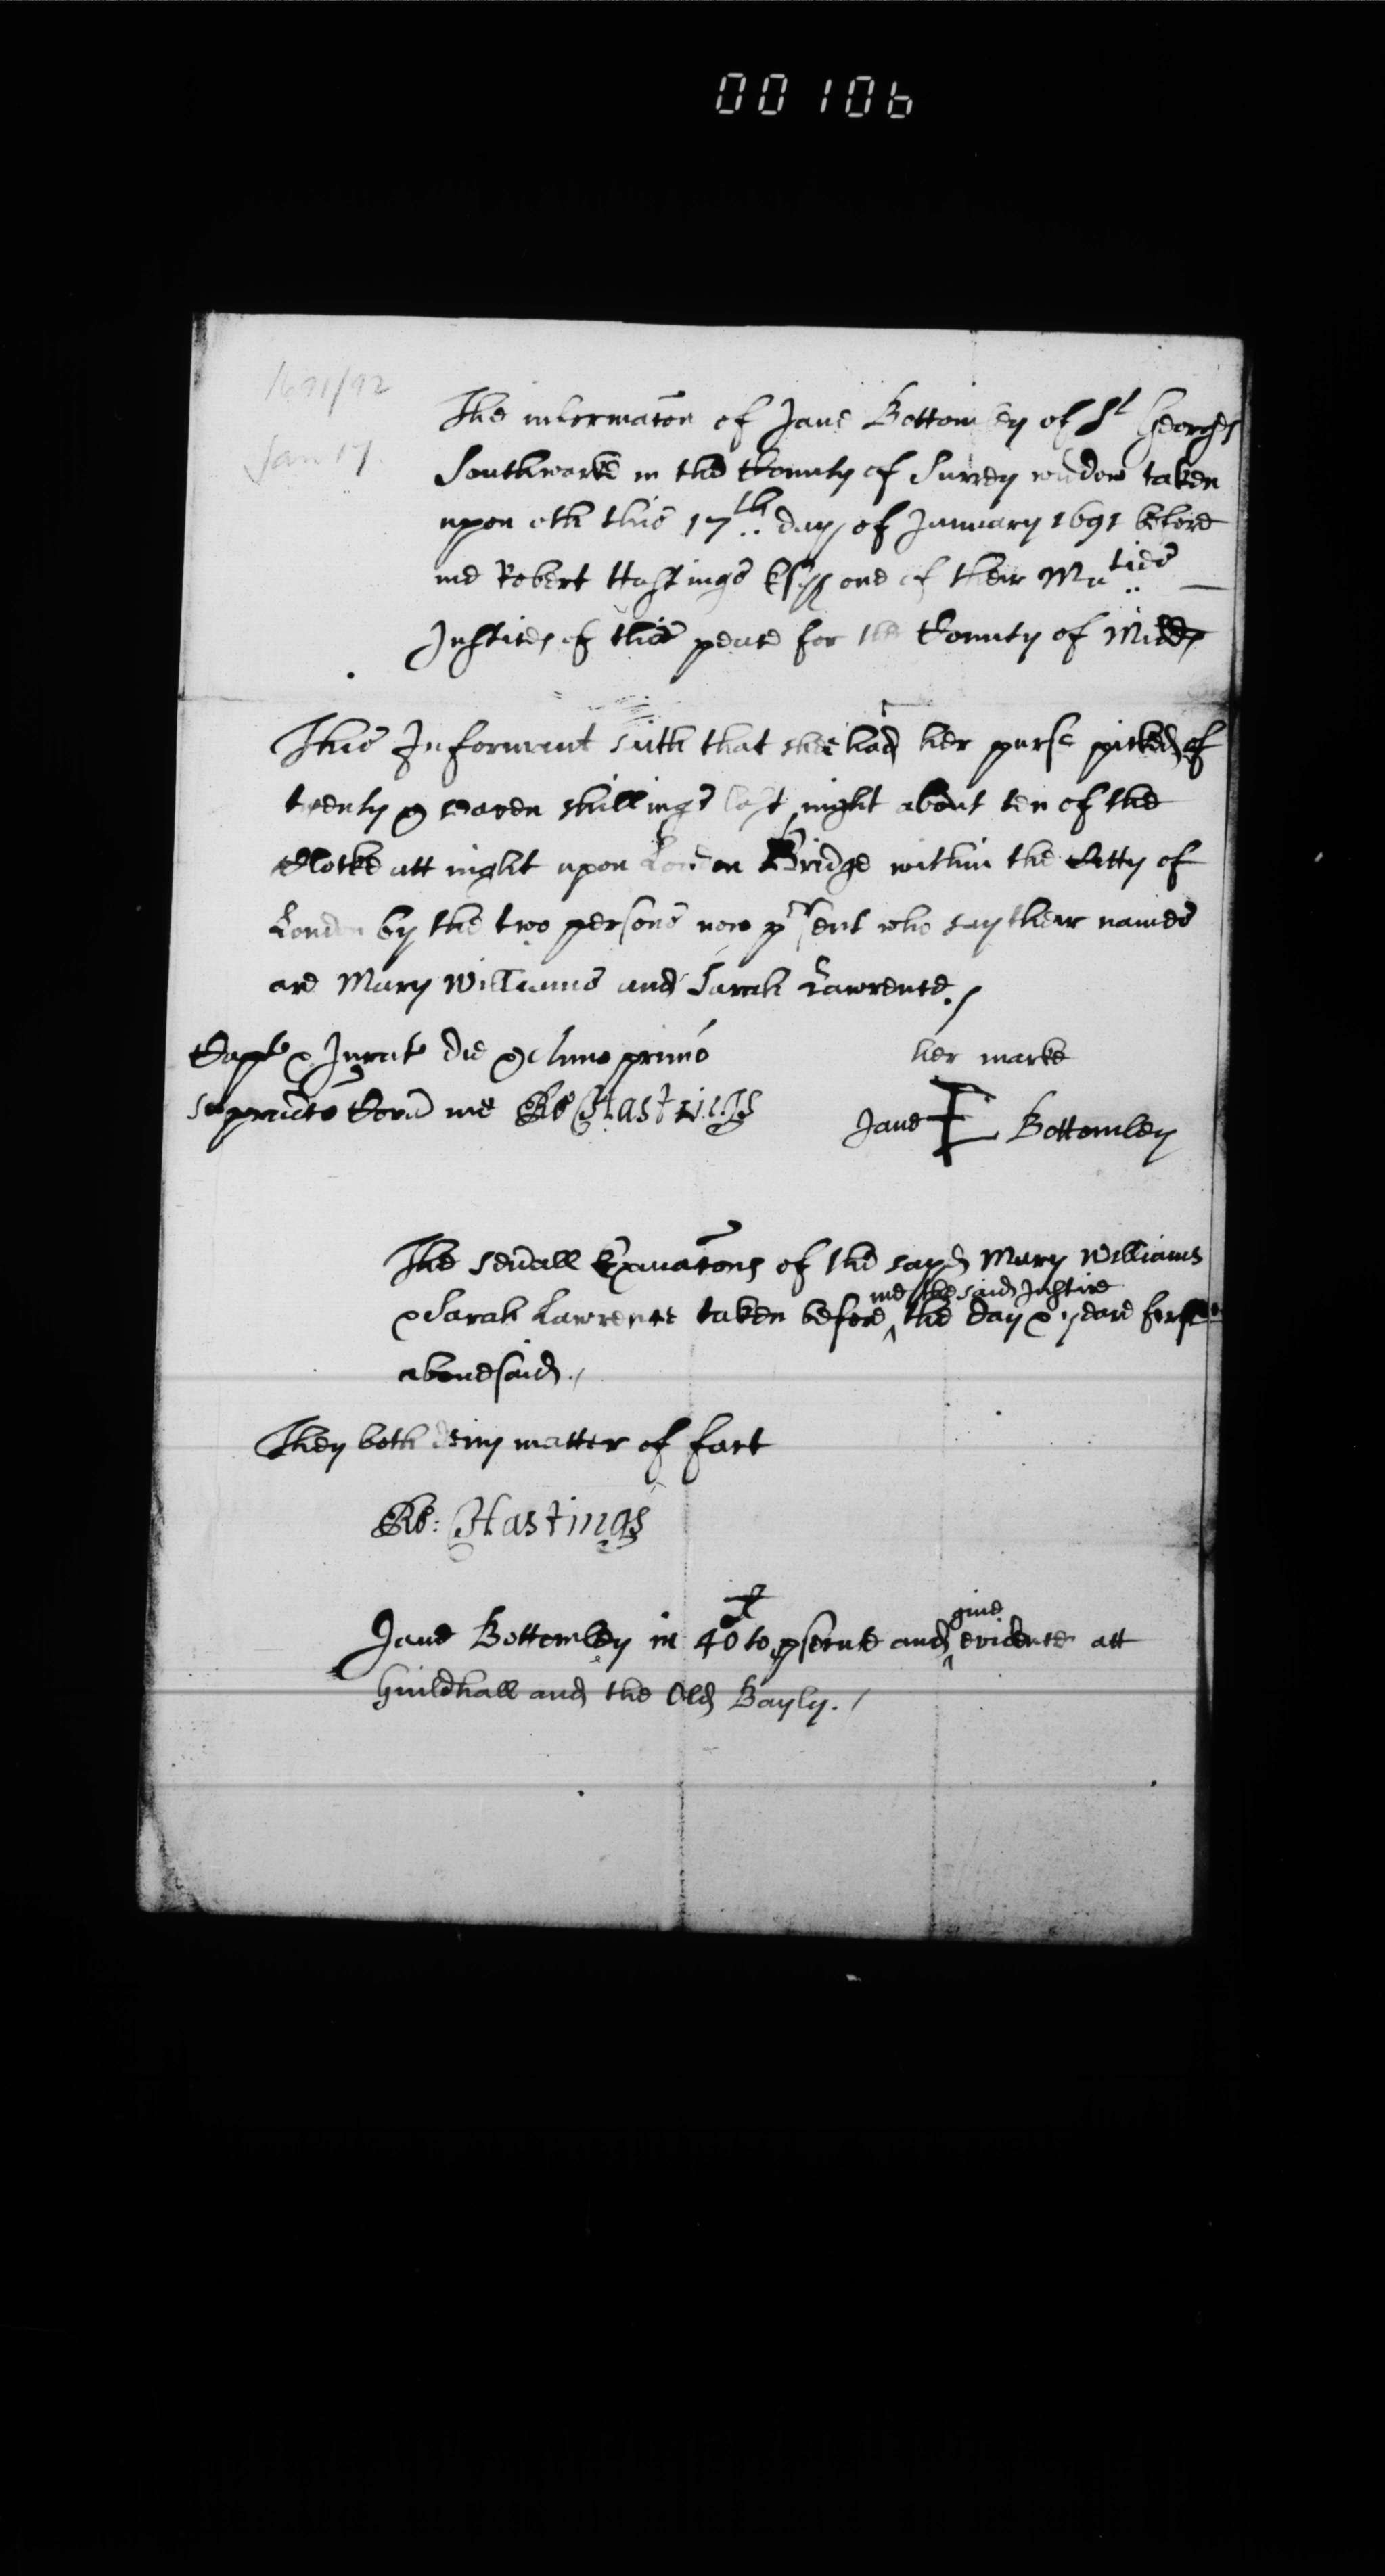 00106
1691/92
Jan 17.
The informacon of Jane Bottomley of St Georges
Southwarke in the County of Surrey widow taken
upon oth this 17th day of January 1691 before
me Robert Hastings Esq one of their Maties
Justices of their peace for the County of Midd
This Informant sith that shee had her purse picked of
twenty & seaven shillings last night about ten of the
Clocke att night upon London Bridge within the Citty of
London by the two persons now prsent who say their names
are Mary Williams and Sarah Lawrence./
Capt & Jurat die & primo
supradicto Coram me Ro Hastings
her marke
Jane Bottomley
The severall Examacons of the sayd Mary Williams
& Sarah Lawrence taken before me the said Justice the day & yeare first
abovesaid./
They both deny matter of fact
Ro: Hastings
Jane Bottomley in 40 to psecute and give evidence att
Guildhall and the Old Bayly./